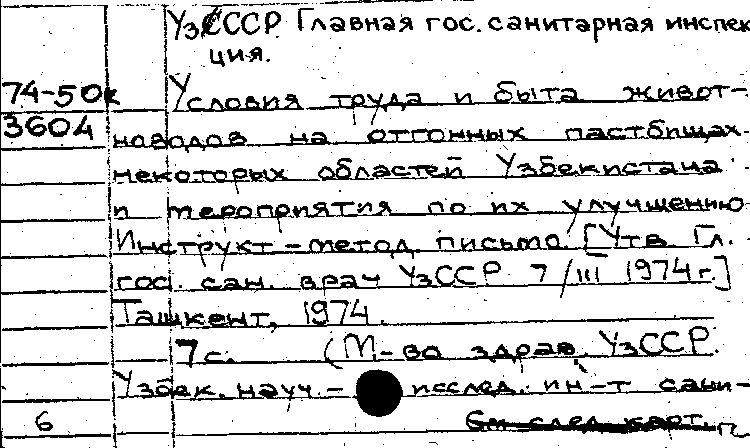 УзССР Главная гос. санитарная инспек
ция.
74-50к Условия труда и быта живот-
3604 новодов на отгонных пастбищах
некоторых областей Узбекистана
и мероприятия по их улучшению
Инструкт-метод. письмо. [Утв Гл.
гос. сан. врач УзССР 7/III 1974г.]
Ташкент, 1974.
7с. (М-во здрав. УзССР.
Узбек. науч.- исслед. ин-т сани-
6 См след карт.